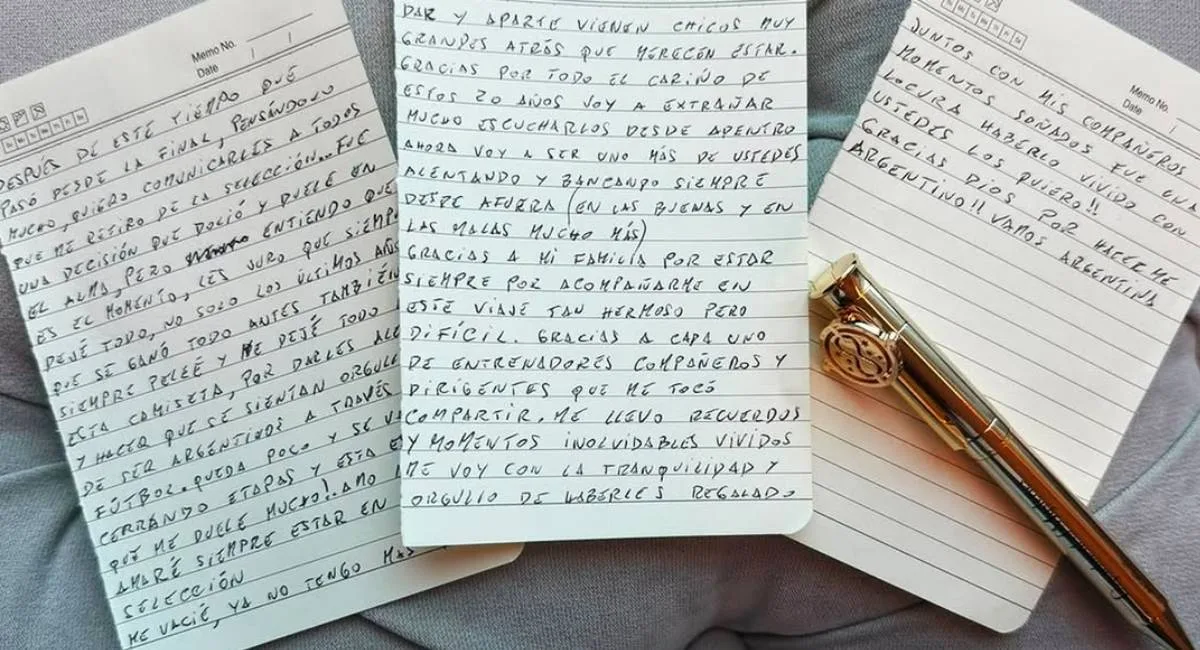 Memo No.
Date / /
DESPUÉS DE ESTE TIEMPO QUE
PASÓ DESDE LA FINAL, PENSÁNDOLO
MUCHO, QUIERO COMUNICARLES A TODOS
QUE ME RETIRO DE LA SELECCIÓN... FUE
UNA DECISIÓN QUE DOLIÓ Y DUELE EN
EL ALMA, PERO ENTIENDO QUE
ES EL MOMENTO, LES JURO QUE SIEMP
DEJÉ TODO, NO SOLO LOS ÚLTIMOS AÑOS
QUE SE GANÓ TODO ANTES TAMBIÉN
SIEMPRE PELEÉ Y ME DEJÉ TODO
ESTA CAMISETA, POR DARLES ALE
Y HACER QUE SE SIENTAN ORGULL
DE SER ARGENTINOS A TRAVÉS
FÚTBOL. QUEDA POCO Y SE VA
CERRANDO ETAPAS Y ESTA E
QUE ME DUELE MUCHO!. AMO
AMARÉ SIEMPRE ESTAR EN
SELECCIÓN
ME VACIÉ, YA NO TENGO MAS
DAR Y APARTE VIENEN CHICOS MUY
GRANDES ATRÁS QUE MERECEN ESTAR.
GRACIAS POR TODO EL CARIÑO DE
ESTOS 20 AÑOS VOY A EXTRAÑAR
MUCHO ESCUCHARLOS DESDE ADENTRO
AHORA VOY A SER UNO MÁS DE USTEDES
ALENTANDO Y BANCANDO SIEMPRE
DESDE AFUERA (EN LAS BUENAS Y EN
LAS MALAS MUCHO MÁS)
GRACIAS A MI FAMILIA POR ESTAR
SIEMPRE POR ACOMPAÑARME EN
ESTE VIAJE TAN HERMOSO PERO
DIFÍCIL. GRACIAS A CADA UNO
DE ENTRENADORES COMPAÑEROS Y
DIRIGENTES QUE ME TOCÓ
COMPARTIR. ME LLEVO RECUERDOS
Y MOMENTOS INOLVIDABLES VIVIDOS
ME VOY CON LA TRANQUILIDAD Y
ORGULLO DE HABERLES REGALADO
Memo No.
Date /
JUNTOS CON MIS COMPAÑEROS
MOMENTOS SOÑADOS FUE UNA
LOCURA HABERLO VIVIDO CON
USTEDES LOS QUIERO!!
GRACIAS DIOS POR HACERME
ARGENTINO!! VAMOS ARGENTINA